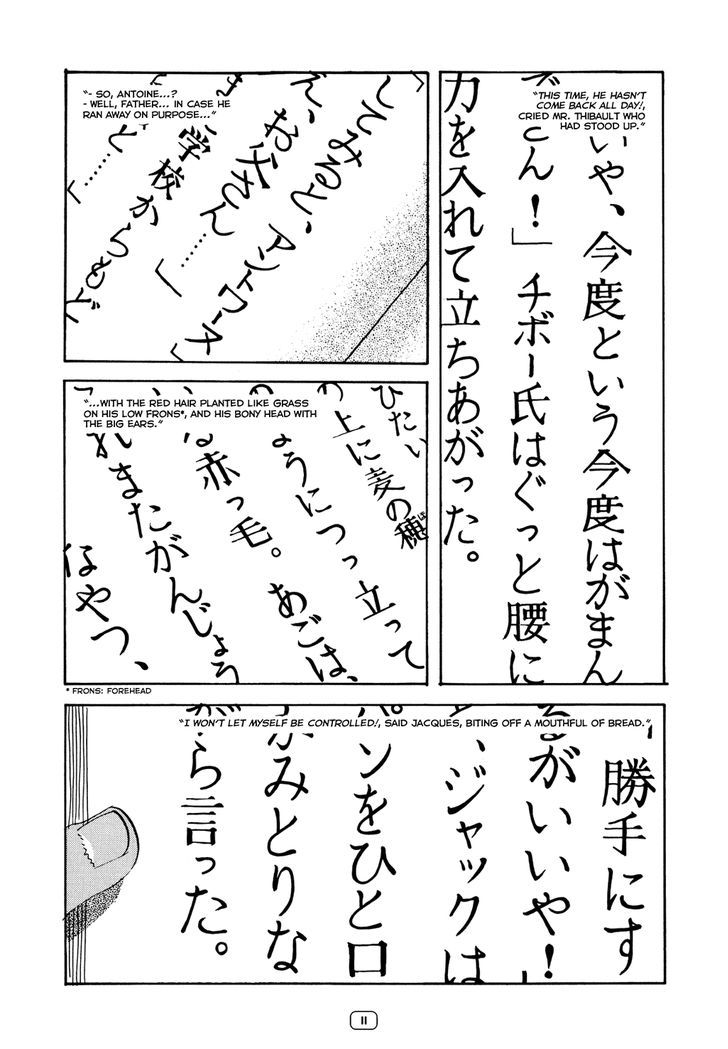 "THIS TIME, HE HASN'T
COME BACK ALL DAY!,
CRIED MR. THIBAULT WHO
HAD STOOD UP."
いや、今度という今度はがまん
ん！」チボー氏はぐっと腰に
力を入れて立ちあがった。
"- SO, ANTOINE...?
- WELL, FATHER... IN CASE HE
RAN AWAY ON PURPOSE..."
してみると、アントワーヌ」
え、お父さん……」
学校からもど
と……」
"...WITH THE RED HAIR PLANTED LIKE GRASS
ON HIS LOW FRONS*, AND HIS BONY HEAD WITH
THE BIG EARS."
ひたい
の上に麦の穂
ようにつっ立って
赤っ毛。あごは、
れまたがんじょう
なやつ、
* FRONS: FOREHEAD
"I WON'T LET MYSELF BE CONTROLLED!, SAID JACQUES, BITING OFF A MOUTHFUL OF BREAD."
勝手にす
るがいいや！」
と、ジャックは
パンをひと口
かみとりな
がら言った。
11